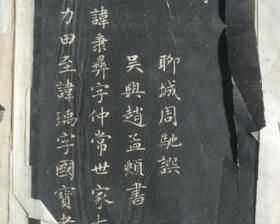 聊城周馳譔
吳興趙孟頫書
諱秉彝字仲常世家
力田至諱瑀字國寶